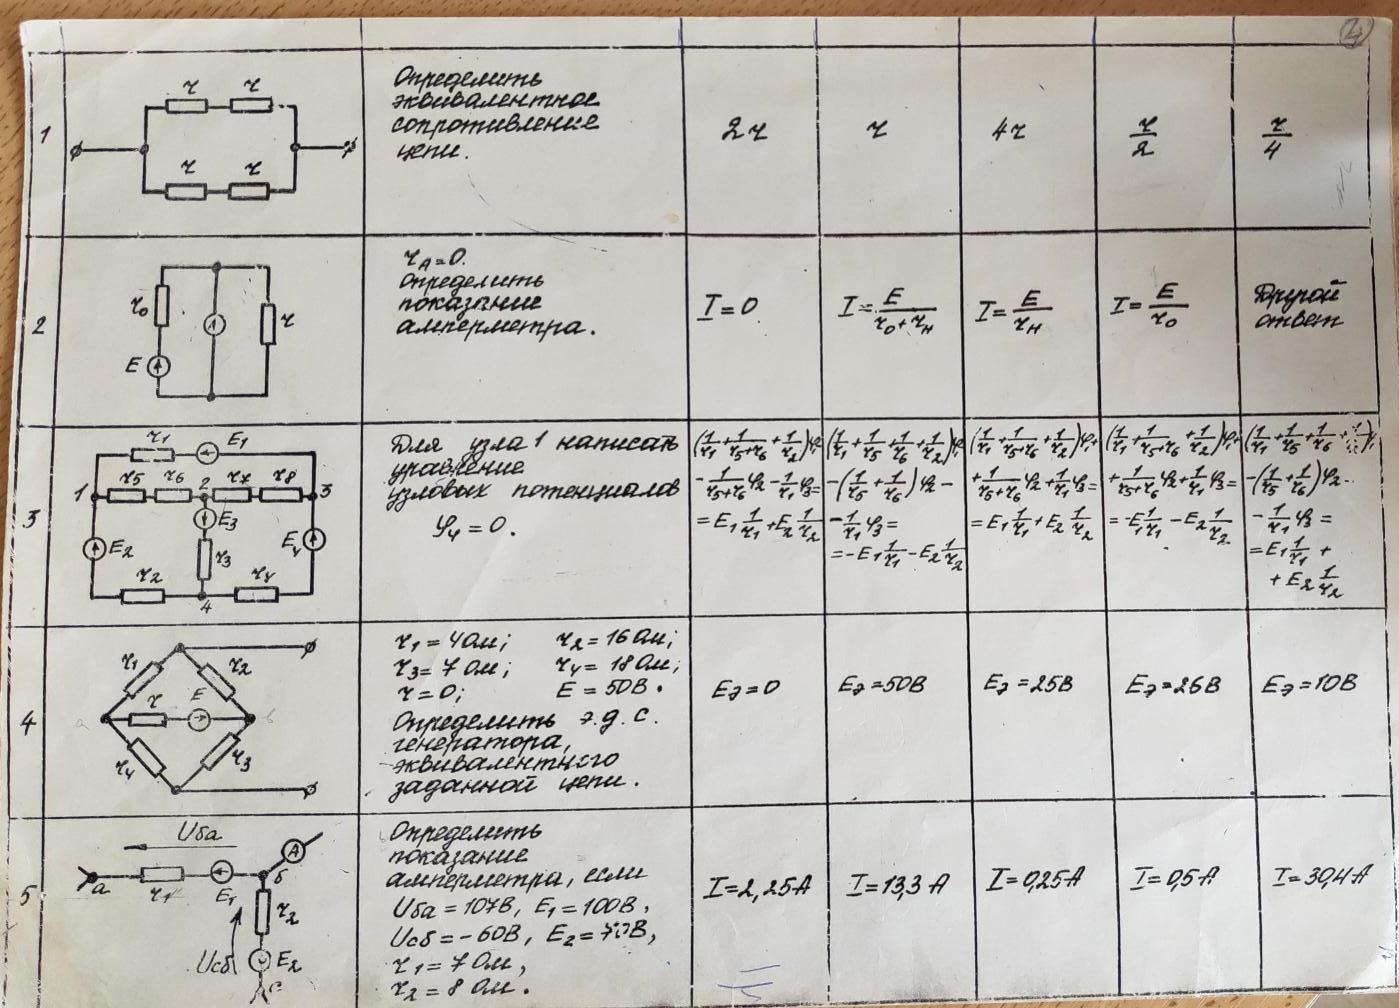 4
1
r r
r r
Определить
эквивалентное
сопротивление
цепи.
2r
r
4r
r/2
r/4
2
r0
E
r
rA=0.
Определить
показание
амперметра.
I=0
I=E/(r0+rн)
I=E/rн
I=E/r0
Другой
ответ
3
r1 E1
1 r5 r6 2 r7 r8 3
E2 E3 r3 E4
r2 4 r4
Для узла 1 написать
уравнение
узловых потенциалов
φ4=0.
(1/r1+1/(r5+r6)+1/r2)φ1
-1/(r5+r6)φ2-1/r1φ3=
=E1 1/r1+E2 1/r2
(1/r1+1/r5+1/r6+1/r2)φ1
-(1/r5+1/r6)φ2-
-1/r1φ3=
=-E1 1/r1-E2 1/r2
(1/r1+1/(r5+r6)+1/r2)φ1+
+1/(r5+r6)φ2+1/r1φ3=
=E1 1/r1+E2 1/r2
(1/r1+1/(r5+r6)+1/r2)φ1+
+1/(r5+r6)φ2+1/r1φ3=
=-E1 1/r1-E2 1/r2
(1/r1+1/r5+1/r6+
-(1/r5+1/r6)φ2-
-1/r1φ3=
=E1 1/r1+
+E2 1/r2
4
r1 r2
a r E в
r4 r3
r1=4Ом; r2=16Ом;
r3=7Ом; r4=18Ом;
r=0; E=50В.
Определить э.д.с.
генератора,
эквивалентного
заданной цепи.
Eэ=0
Eэ=50В
Eэ=25В
Eэ=26В
Eэ=10В
5
Uба
A
a r1 E1 б
r2
Uсб E2
с
Определить
показание
амперметра, если
Uба=107В, E1=100В,
Uсб=-60В, E2=70В,
r1=7Ом,
r2=8Ом.
I=2,25А
I=13,3А
I=0,25А
I=0,5А
I=30,4А